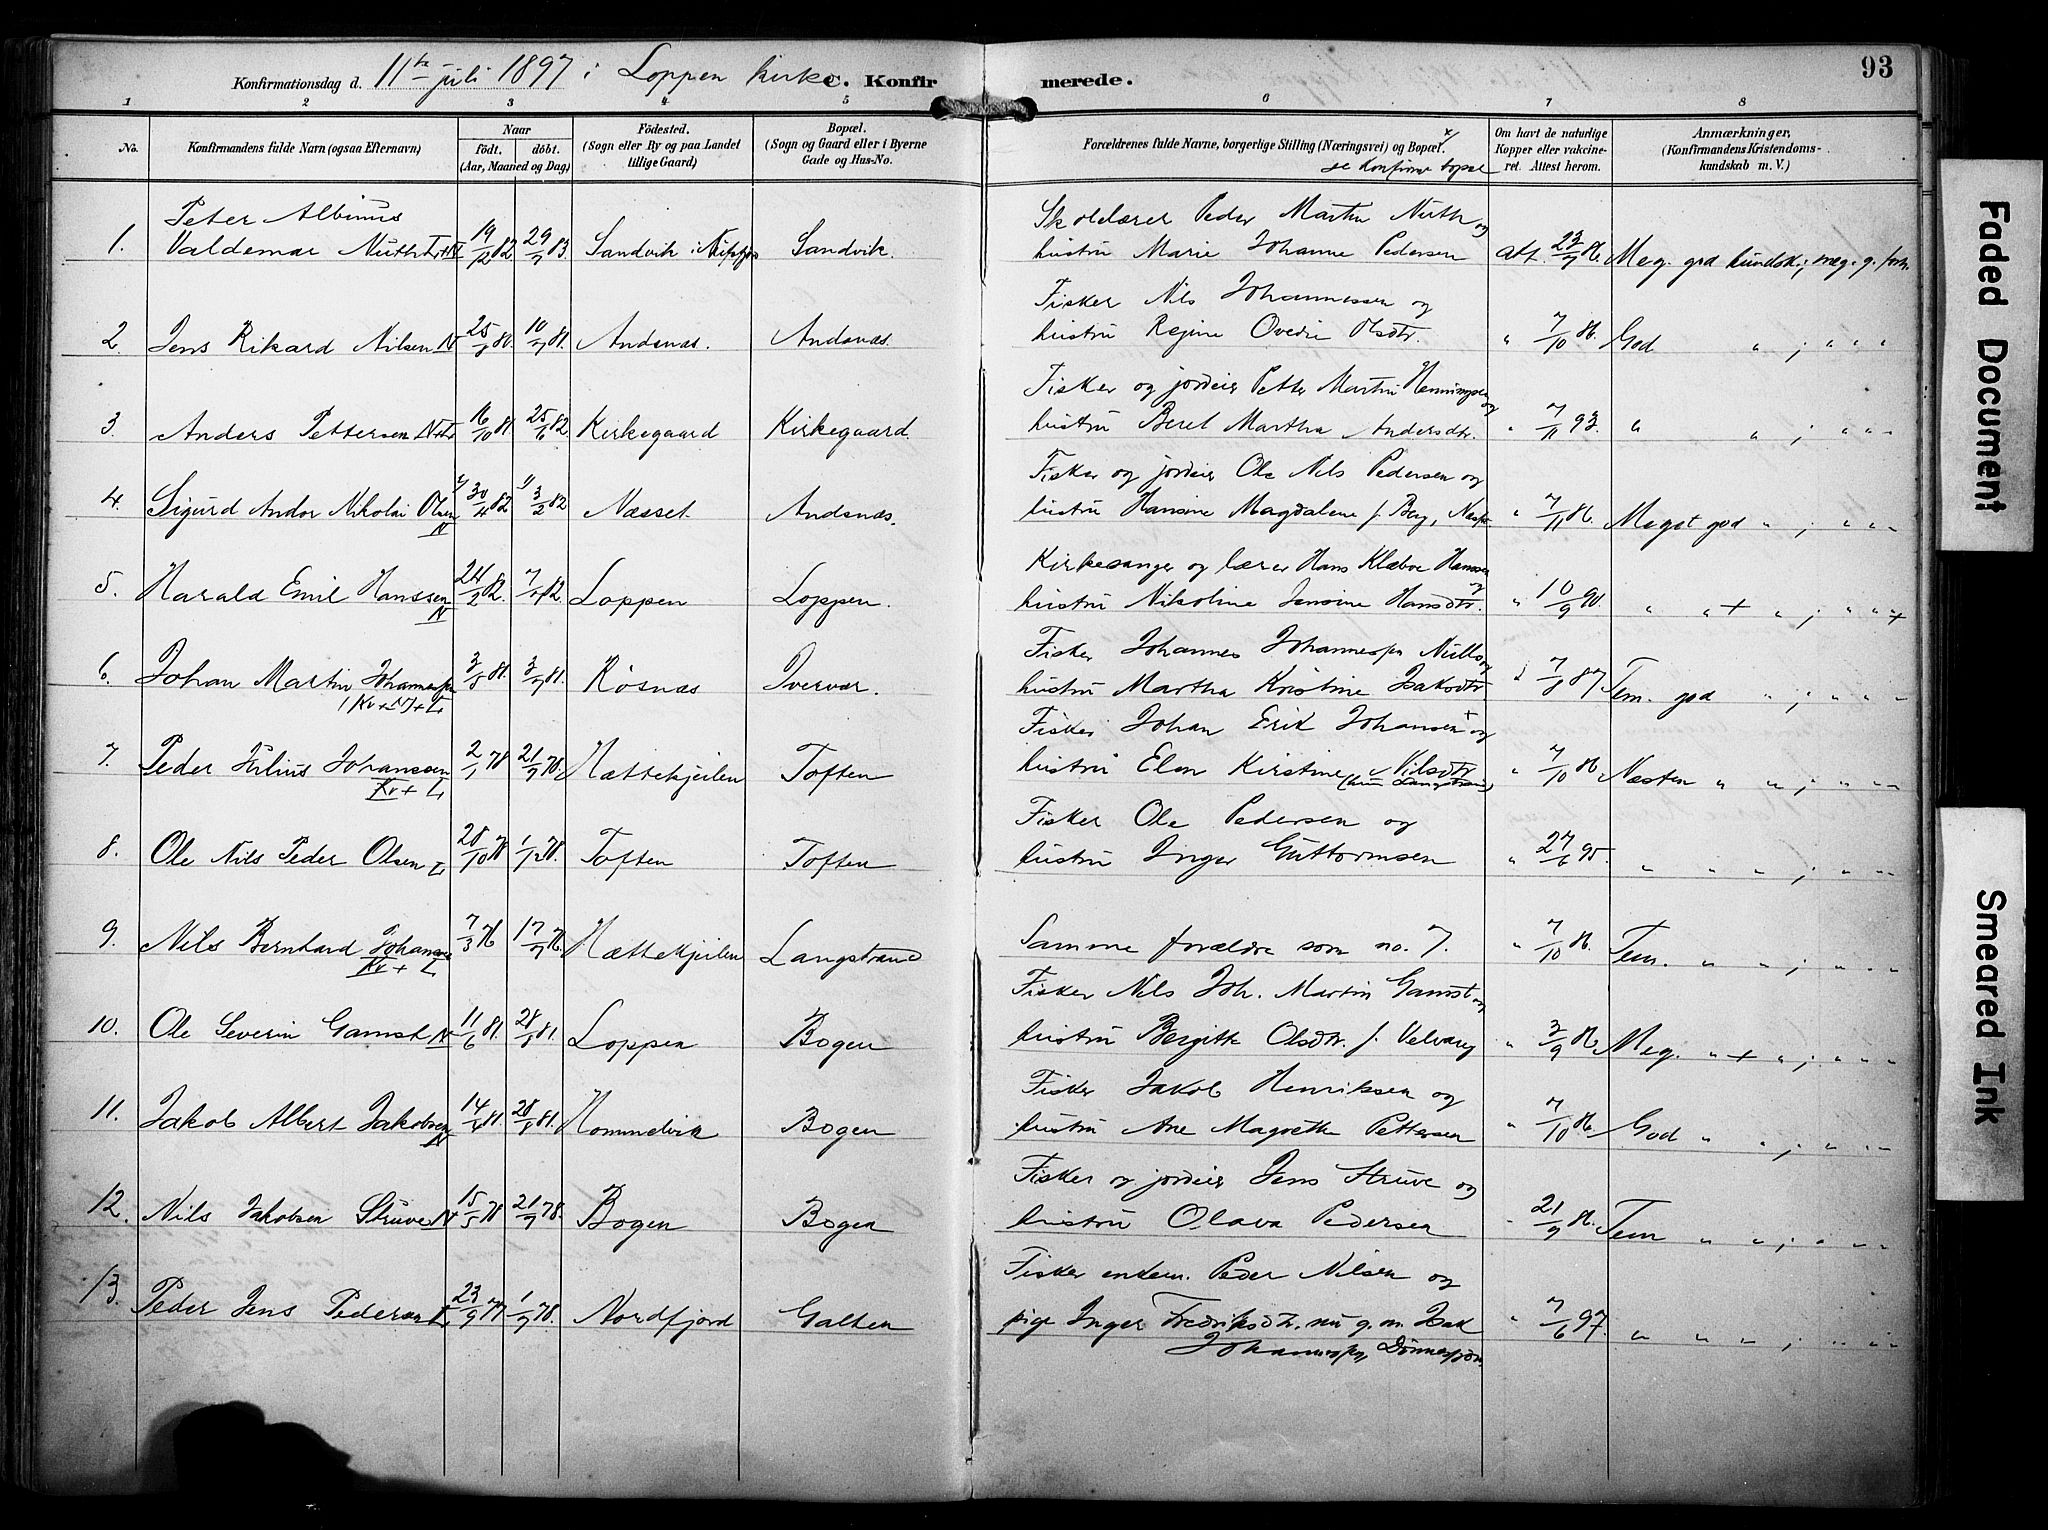 93
Konfirmationsdag d. 11te juli 1897 i Loppen kirke C. Konfirmerede.
1 2 3 4 5 6 7 8
No. Konfirmandens fulde Navn (ogsaa Efternavn) Naar født, døbt. (Aar, Maaned og Dag) Fødested. (Sogn eller By og paa Landet tillige Gaard) Bopæl. (Sogn og Gaard eller i Byerne Gade og Hus-No. Forældrenes fulde Navne, borgerlige Stilling (Næringsvei) og Bopæl. x/ Om havt de naturlige Kopper eller vakcineret. Attest herom. Anmærkninger, (Konfirmandens Kristendomskundskab m. V.)
se konfirm. bopæl
Peter Albinus Skolelærer Peder Martin Nuth og
1. Valdemar Nuth 19/12 82 29/7 83 Sandvik i Sandvik. hustru Marie Johanne Pedersen Att. 23/9 86. Meg. god kundsk.; meg. g. forh.
Fisker Nils Johannessen og
2. Jens Rikard Nilsen N 25/8 80. 10/7 81. Andsnæs. Andsnæs. hustru Regine Ovedie Olsdtr. " 7/10 86. God " ; " " "
Fisker og jordeier Petter Martin Henningsen og
3. Anders Pettersen 16/10 81 25/6 82. Kirkegaard Kirkegaard. hustru Beret Martha Andersdtr. " 7/11 93. " " ; " " "
Fisker og jordeier Ole Nils Pedersen og
4. Sigurd Andor Nikolai Olsen N 30/4 82 3/2 82 Næsset Andsnæs. hustru Hansine Magdalene f. Berg, " 7/11 86. Meget god " ; " " "
Kirkesanger og lærer Hans Klæboe Hanssen og
5. Harald Emil Hanssen N 24/2 82. 7/7 82. Loppen Loppen. hustru Nikoline Jensine Hansdtr. " 10/9 90. " " + " ; " " " +
Fisker Johannes Johannesen og
6. Johan Martin Johannesen (Kv+N)+L 3/5 81. 3/7 81. Røsnæs Ytervær. hustru Martha Kristine Isaksdtr. 7/8 87 Tem. god " ; " " "
Fisker Johan Erik Johansen + og
7. Peder Julius Johanssen Kv + L 2/1 78 21/7 78. Hættekjeilen Toften hustru Elen Kirstine Nilsdtr " 7/10 86. Næsten " " ; " " "
Fisker Ole Pedersen og
8. Ole Nils Peder Olsen L 28/10 78 1/12 78. Toften Toften hustru Inger Guttormsen " 27/6 95. " " " ; " " "
9. Nils Bernhard Johansen Kv + L 7/3 76 17/7 76. Hættekjeilen Langstrand Samme forældre som no. 7. " 7/10 86. Tem. " " ; " " "
Fisker Nils Joh. Martin Gamst og
10. Ole Severin Gamst N 11/6 81. 28/8 81. Loppen Bogen hustru Bergitte Olsdtr. f. " 3/9 86 Meg. " + " ; " " "
Fisker Jakob Henriksen og
11. Jakob Albert Jakobsen N 14/4 81. 28/8 81. Hommelvik Bogen hustru Ane Magrethe Pettersen " 7/10 86. God " " ; " " "
Fisker og jordeier Jens Struve og
12. Nils Jakobsen Struve N 15/5 78 21/7 78. Bogen Bogen hustru Olava Pedersen " 21/9 86. Tem " " ; " " "
Fisker enkem. Peder Nilsen og
13. Peder Jens Pedersen L 23/9 77 1/7 78. Nordfjord Galten pige Inger Fredriksdtr. nu g. m. Isak " 7/6 97. " " " ; " " "
Johannesen, Dønnesfjord
Faded Document
Smeared Ink